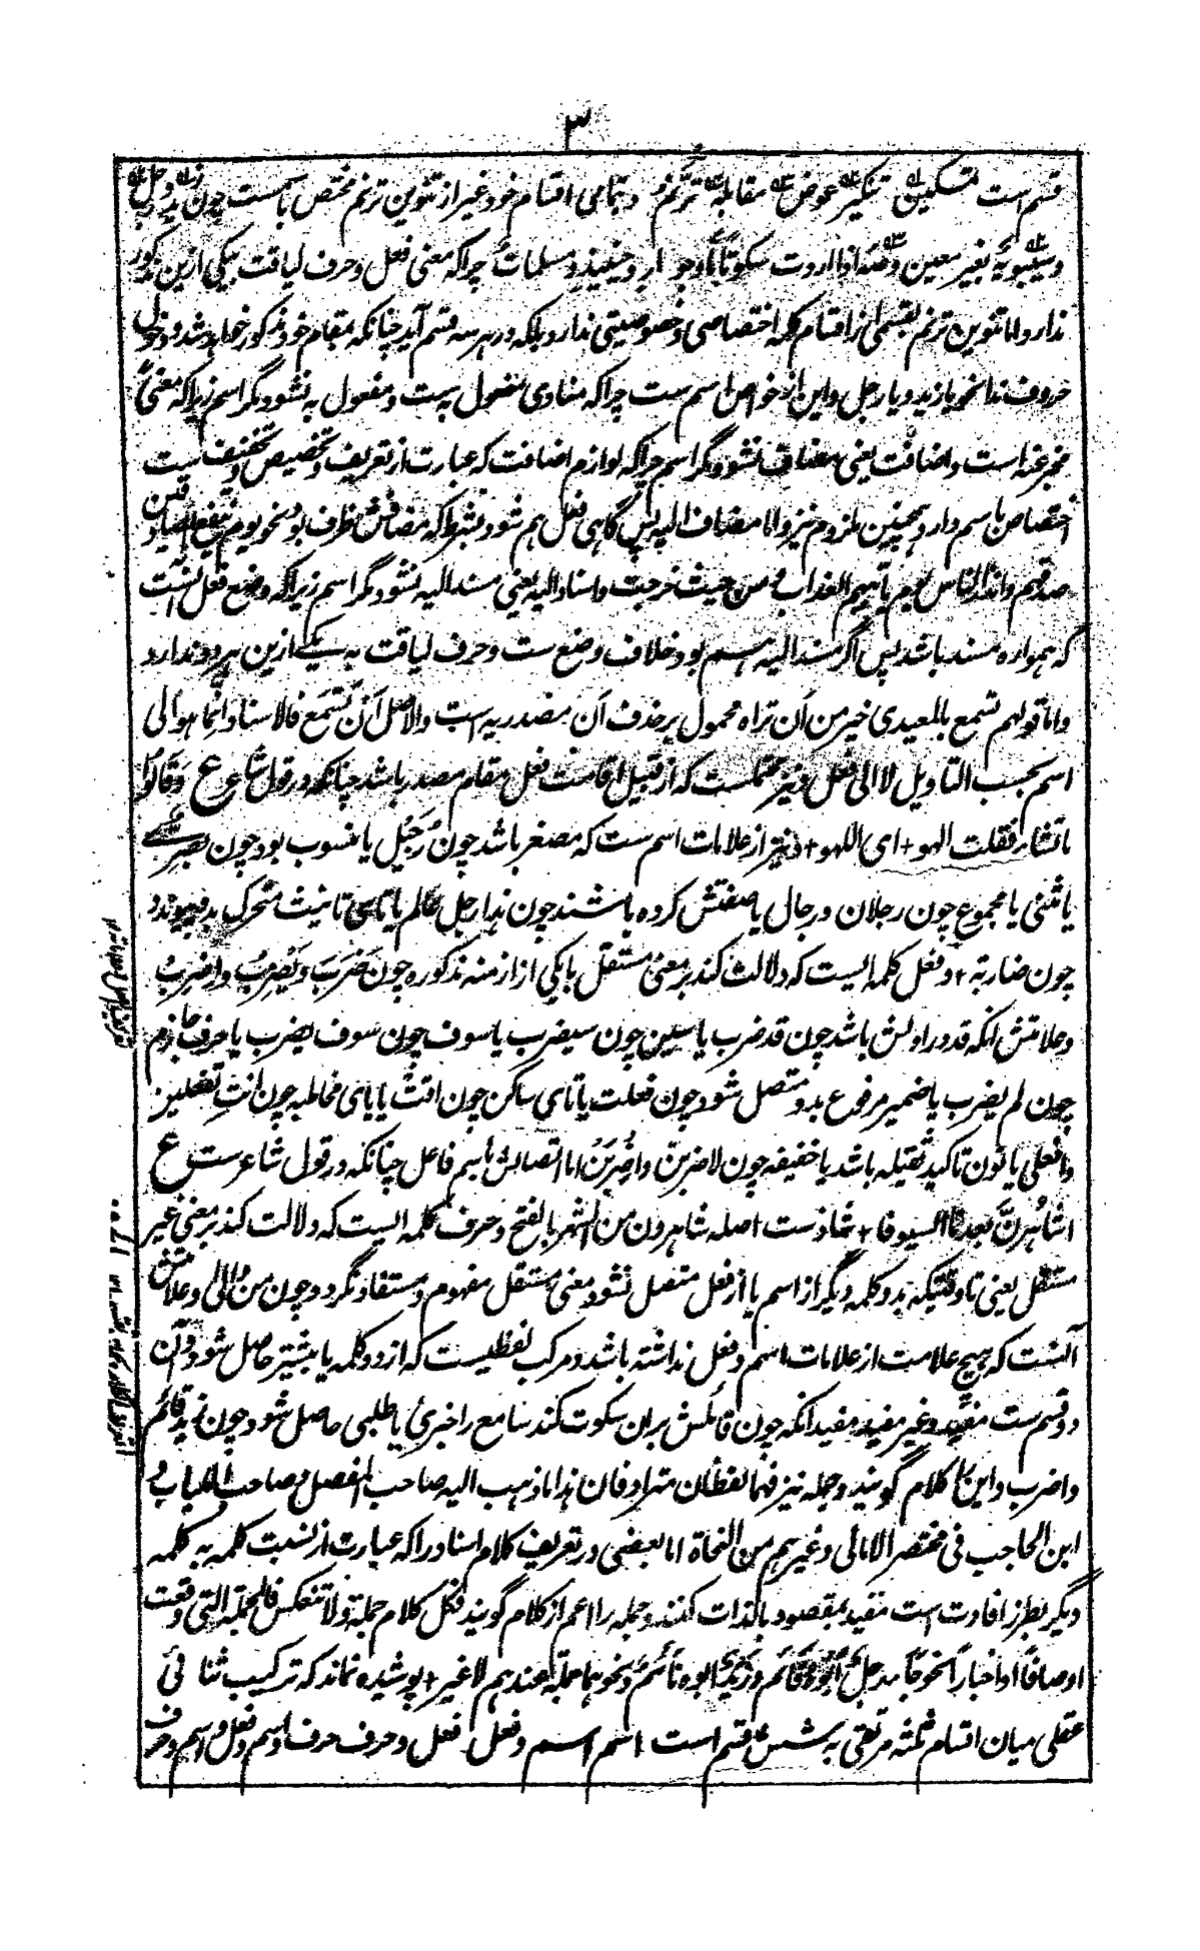 ۳
قسم است تمکین تنکیر عوض مقابله ترنم و تمامی اقسام خود غیر از تنوین ترنم مختص باسمست چون زید و رجل
ندارد اما تنوین ترنم بقسمی از اقسام کلمه اختصاصی و خصوصیتی ندارد بلکه در هر سه قسم آید چنانکه بمقام خود مذکور خواهد شد و دخول
حروف ندا نحو یا زید و یا رجل و این از خواص اسم ست چراکه منادی مفعول به ست و مفعول به نشود مگر اسم زیراکه معنیً
مخبر عنه است و اضافت یعنی مضاف نشود مگر اسم چراکه لوازم اضافت که عبارت از تعریف و تخصیص و تخفیف ست
اختصاص باسم دارد همچنین ملزوم نیز و اما مضاف الیه پس گاهی فعل هم شود بشرطیکه مضافش ظرف بود نحو یوم ینفع الصادقین
صدقهم و انذر الناس یوم یاتیهم العذاب و من حیث خرجت و اسناد الیه یعنی مسند الیه نشود مگر اسم زیراکه وضع فعل آنست
که همواره مسند باشد پس اگر مسند الیه هم بود خلاف وضع ست و حرف لیاقت به یکے ازین هر دو ندارد
و اما قولهم تسمع بالمعیدی خیر من اَن تراه محمول بر حذف اَن مصدریه است والاصل اَن تَسْمَع فالاسناد انما هو الی
اسم بحسب التاویل لا الی فعل و نیز محتملست که از قبیل اقامت فعل مقام مصدر باشد چنانکه در قول شاعر ع وَقَالُوا
ما تشاء فقلت الهو + ای اللهو + و نیز از علامات اسم ست که مصغر باشد چون رُجَیل یا منسوب بود چون بصریّ
یا مثنی یا مجموع چون رجلان و رجال یا صفتش کرده باشند چون هذا رجل عالم یا تای تانیث متحرک بدو پیوندد
چون ضاربة + و فعل کلمه ایست که دلالت کند بر معنی مستقل با یکی از ازمنه مذکوره چون ضَرَبَ و یَضرِبُ و اِضرِب
و علامتش آنکه قد در اولش باشد چون قد ضرب یا سین چون سیضرب یا سوف چون سوف یضرب یا حرف جازم
چون لم یضرب یا ضمیر مرفوع بدو متصل شود چون فعلت یا تای ساکن چون اتت یا یای مخاطبه چون انتِ تفعلین
وافعلی یا نون تاکید ثقیله باشد یا خفیفه چون لاضربنّ و اضربَنْ اما اتصالش باسم فاعل چنانکه در قول شاعر ست ع
اشاهُرنَّ بعدنا السیوفا + شاذست اصله شاهرون من الشهر بالفتح و حرف کلمه ایست که دلالت کند بر معنی غیر
مستقل یعنی تا وقتیکه بدو کلمه دیگر از اسم یا از فعل متصل نشود معنی مستقل مفهوم و مستفاد نگردد چون من و الی و علامتش
آنست که هیچ علامت از علامات اسم و فعل نداشته باشد و مرکب لفظیست که از دو کلمه یا بیشتر حاصل شود و آن
دو قسم ست مفید و غیر مفید مفید آنکه چون قائلش بران سکوت کند سامع را خبری یا طلبی حاصل شود چون زید قائم
و اضرب و این را کلام گویند و جمله نیز فهما لفظان مترادفان هذا ما ذهب الیه صاحب المفصل و صاحب اللباب و
ابن الحاجب فی مختصر الامالی و غیرهم من النحاة اما بعضی در تعریف کلام اسناد را که عبارت از نسبت کلمه به کلمه
دیگر بطرز افادت است مقید بمقصود بالذات کنند و جمله را اعم از کلام گویند فکل کلام جملة و لا تنعکس فالجملة التی وقعت
اوصافاً او اخباراً نحو جاء رجل ابوه قائم و زید ابوه قائم و نحوهما جملة عندهم لا غیر + پوشیده نماند که ترکیب ثنائی
عقلی میان اقسام ثلثه مرتقی به شش قسم است اسم اسم و فعل فعل و حرف حرف و اسم و فعل و اسم و حرف